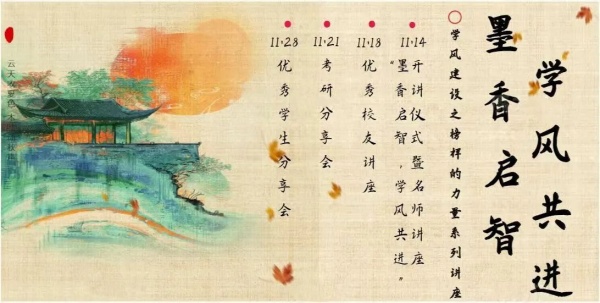 墨香启智
学风共进
学风建设之榜样的力量系列讲座
11.14
“墨香启智，学风共进”
开讲仪式暨名师讲座
11.18
优秀校友讲座
11.21
考研分享会
11.28
优秀学生分享会
云天